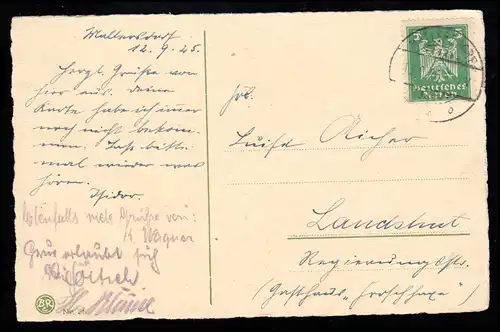 Mallersdorf
12.9.25.
Herzl. Grüße von
hier aus. Deine
Karte habe ich immer
noch nicht bekom-
men. Laß bitte
mal wieder was
hören.
Isidor.
Ebenfalls viele Grüße von:
Wagner
erlaubt sich
Frl.
Luise Aicher
Landshut
Regierungsstr.
(Gasthaus „Froschhaxe")
5 5
Deutsches
Reich
BR